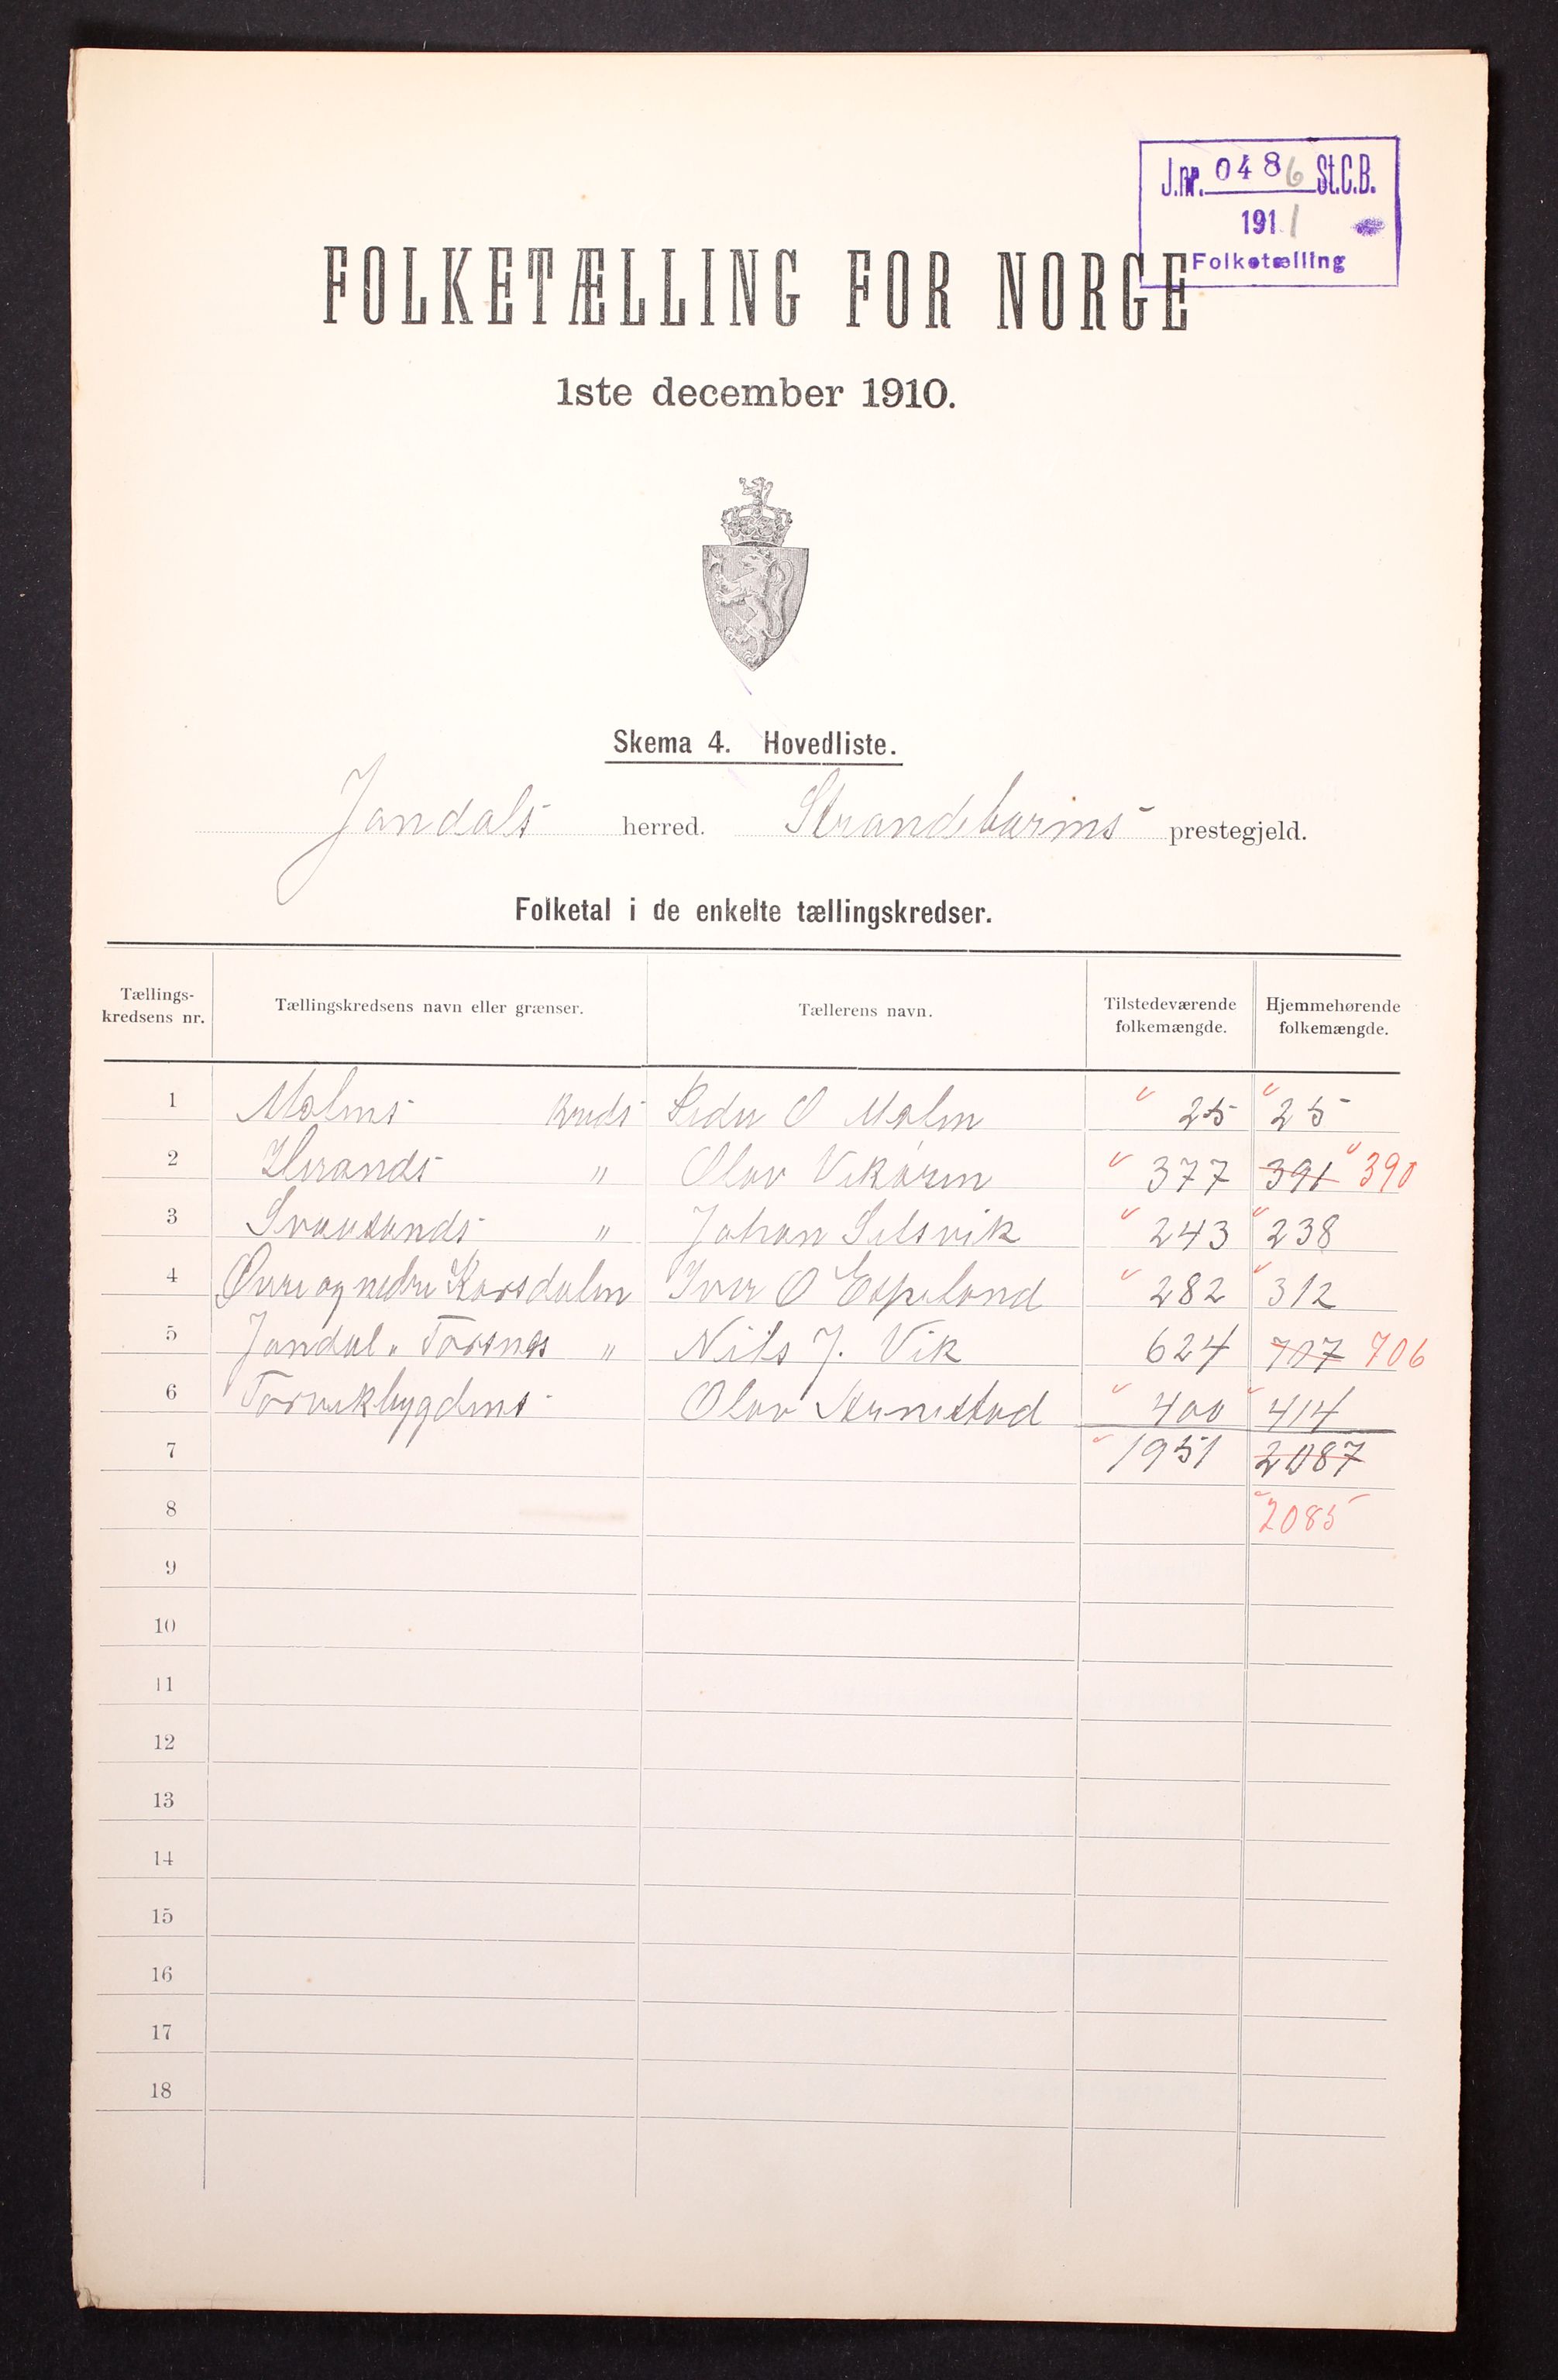 J.nr. 0486 St.C.B.
1911
Folketælling
FOLKETÆLLING FOR NORGE
1ste december 1910.
Skema 4. Hovedliste.
Jondals herred. Strandebarms prestegjeld.
Folketal i de enkelte tællingskredser.
Tællings-
kredsens nr.
Tællingskredsens navn eller grænser.
Tællerens navn.
Tilstedeværende
folkemængde.
Hjemmehørende
folkemængde.
1 Malms kreds Peder O Malm 25 25
2 Herands " Olav Vikören 377 391 390
3 Svausands " Johan Selsvik 243 238
4 Övre og nedre Korsdalen Iver O Espeland 282 312
5 Jondal " Torsnes " Nils J. Vik 624 707 706
6 Torvikbygdens Olav 400 414
7 1951 2087
8 2085
9
10
11
12
13
14
15
16
17
18